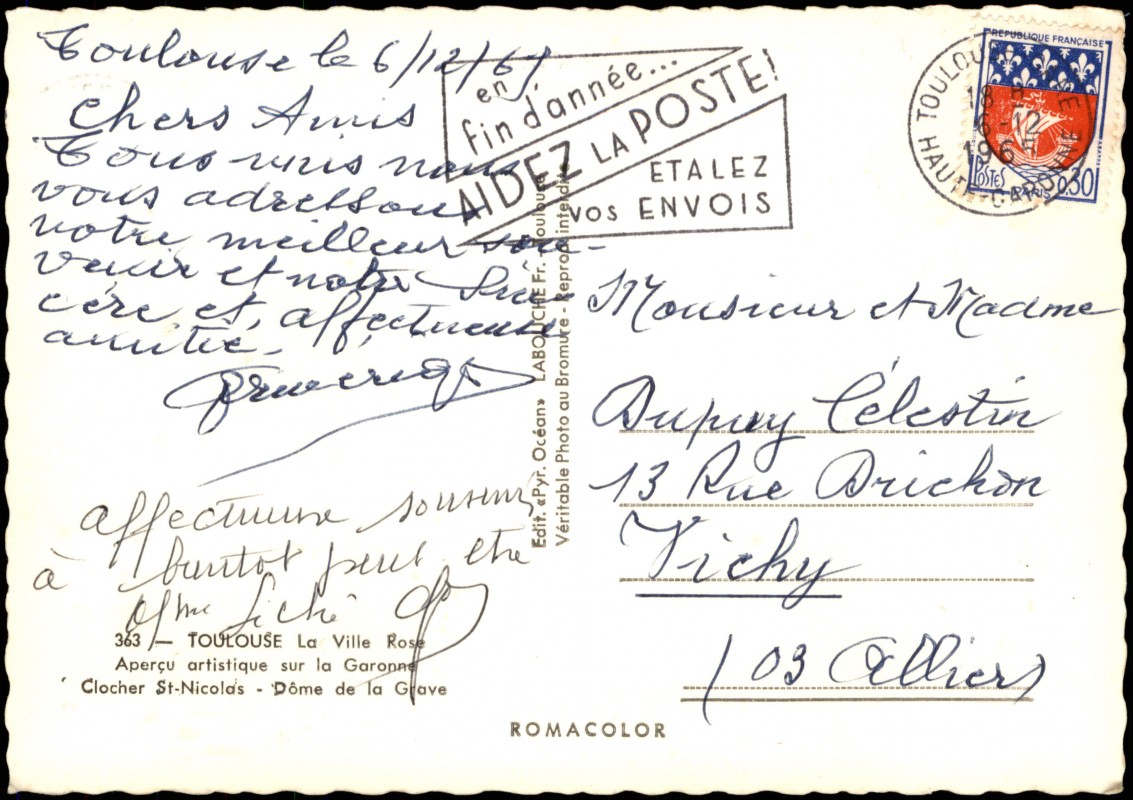 Toulouse le 6/12/65
Chers Amis
Tous unis nous
vous adressons
notre meilleur sou-
venir et notre sin
cère et, affectueuse
amitié.
affectueux souvenir
à bientôt peut etre
Mme
363 — TOULOUSE La Ville Rose
Aperçu artistique sur la Garonne
Clocher St-Nicolas - Dôme de la Grave
Edit. «Pyr. Océan» LABOUCHE Fr. - Toulouse
Véritable Photo au Bromure - Reprod. interdite
en
fin d'année...
AIDEZ LA POSTE!
ETALEZ
VOS ENVOIS
TOULOUSE
18 H
6-12
196
HAUTE-GARONNE
REPUBLIQUE FRANÇAISE
POSTES PARIS 0,30
Monsieur et Madme
Dupuy Célestin
13 Rue Drichon
Vichy
(03 Allier)
ROMACOLOR